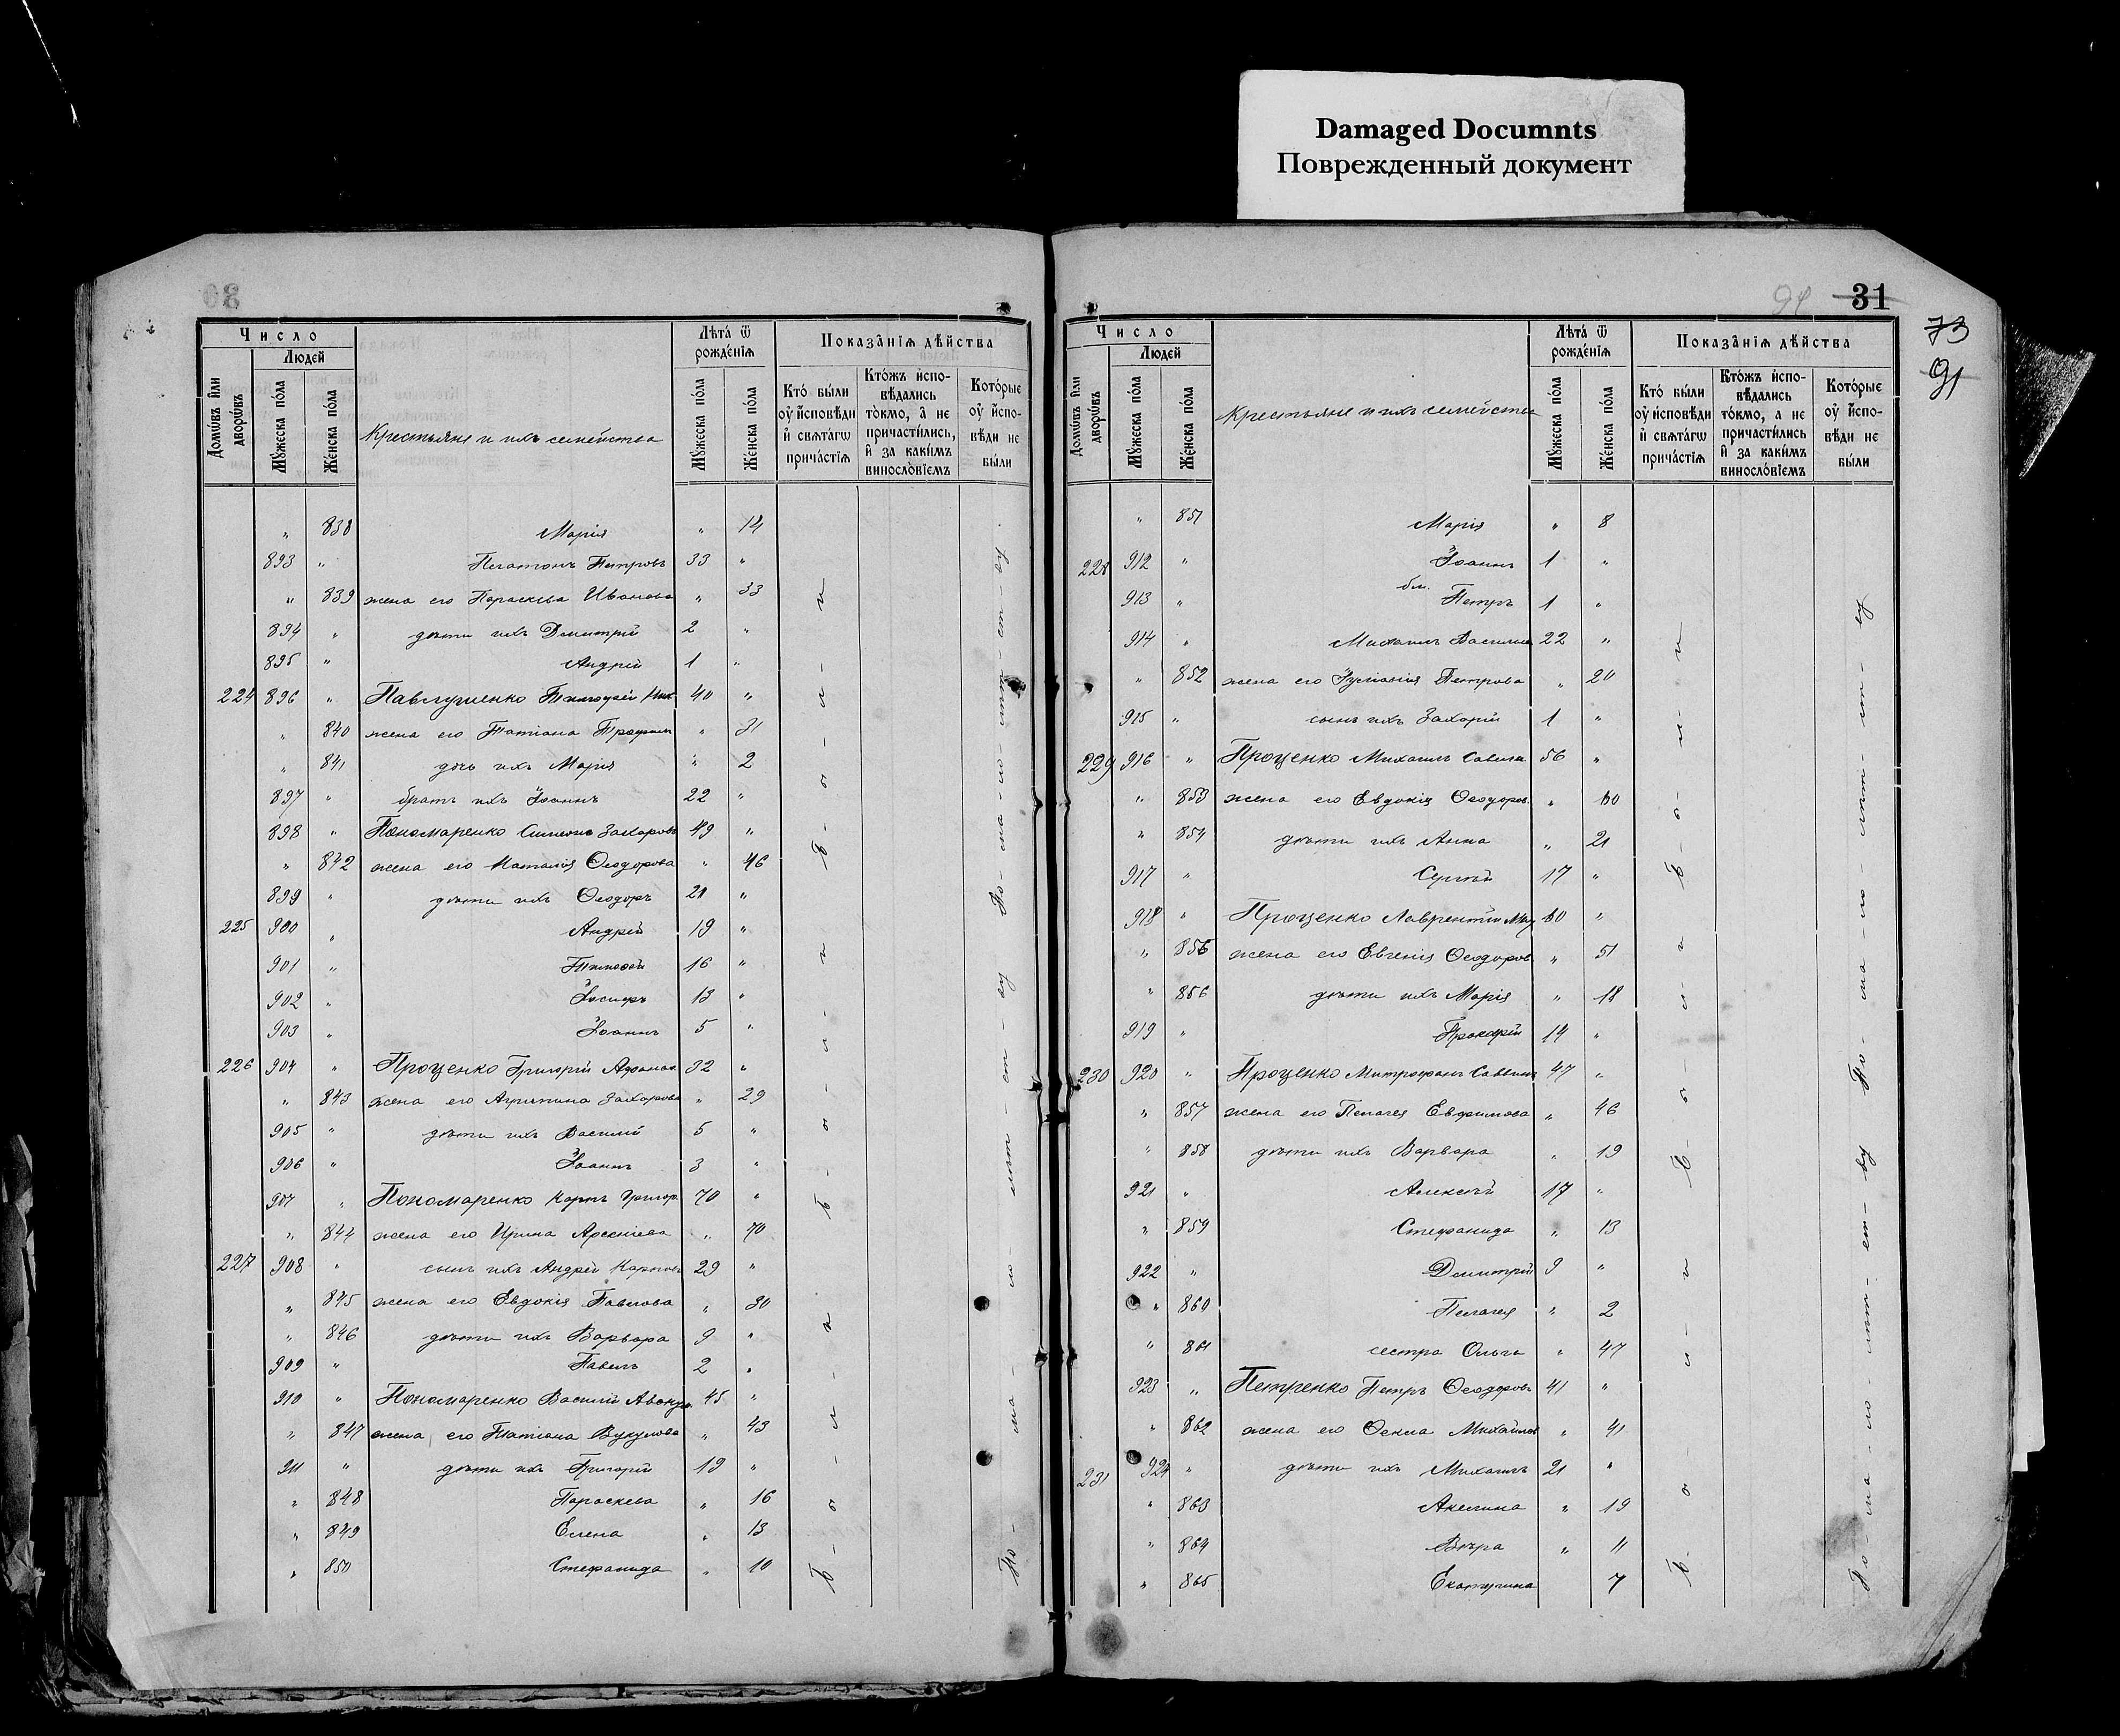 Damaged Documnts
Поврежденный документ
30
Число
Людей
Домѡвъ или дворѡвъ
Мꙋжеска пола
Женска пола
Крестьяне и ихъ семейства
Лѣта ѿ рожденїѧ
Мꙋжеска пола
Женска пола
Показанїѧ дѣйства
Кто были оу исповѣди и свѧтагѡ причастїѧ
Ктожъ испо-вѣдались токмо, а не причастились, и за какимъ винословїемъ
Которые оу испо-вѣди не были
" 838 Марія " 14
893 " Платонъ Петровъ 33 "
" 839 жена его Параскева Иванова " 33
894 " дѣти ихъ Димитрій 2 "
895 " Андрей 1 "
224 896 " Павлушенко Тимофей Ник 40 "
" 840 жена его Татіана Трофим " 31
" 841 дочь ихъ Марія " 2
897 " братъ ихъ Іоаннъ 22 "
898 " Пономаренко Симеонъ Захаровъ 49 "
" 842 жена его Наталія Ѳеодорова " 46
899 " дѣти ихъ Ѳеодоръ 21 "
225 900 " Андрей 19 "
901 " Тимофей 16 "
902 " Іосифъ 13 "
903 " Іоаннъ 5 "
226 904 " Проценко Григорій Афанас 32 "
" 843 жена его Агрипина Захарова " 29
905 " дѣти ихъ Василій 5 "
906 " Іоаннъ 3 "
907 " Пономаренко Карпъ Григор 70 "
" 844 жена его Ирина Арсеніева " 70
227 908 " сынъ ихъ Андрей Карповъ 29 "
" 845 жена его Евдокія Павлова " 30
" 846 дѣти ихъ Варвара 9 "
909 " Павелъ 2 "
910 " Пономаренко Василій 45 "
" 847 жена его Татіана Вукулова " 43
911 " дѣти ихъ Григорій 19 "
" 848 Параскева " 16
" 849 Елена " 13
" 850 Стефанида " 10
31
94
73
91
Число
Людей
Домѡвъ или дворѡвъ
Мꙋжеска пола
Женска пола
Крестьяне и ихъ семейства
Лѣта ѿ рожденїѧ
Мꙋжеска пола
Женска пола
Показанїѧ дѣйства
Кто были оу исповѣди и свѧтагѡ причастїѧ
Ктожъ испо-вѣдались токмо, а не причастились и за какимъ винословїемъ
Которые оу испо-вѣди не были
" 851 Марія " 8
228 912 " Іоаннъ 1 "
913 " бл. Петръ 1 "
914 " Михаилъ Васильев 22 "
" 852 жена его Іуліанія Петрова " 20
915 " сынъ ихъ Захарій 1 "
229 916 " Проценко Михаилъ Савина 56 "
" 853 жена его Евдокія Ѳеодоров. " 60
" 854 дѣти ихъ Анна " 21
917 " Сергѣй 17 "
918 " Проценко Лаврентій 60 "
" 856 жена его Евгенія Ѳеодоров " 51
" 856 дѣти ихъ Марія " 18
919 " Прокофій 14 "
230 920 " Проценко Митрофанъ Саввинъ 47 "
" 857 жена его Пелагея Евфимова " 46
" 858 дѣти ихъ Варвара " 19
921 " Алексѣй 17 "
" 859 Стефанида " 13
922 " Димитрій 9 "
" 860 Пелагея " 2
" 861 сестра Ольга " 47
923 " Петренко Петръ Ѳеодоровъ 41 "
" 862 жена его Ѳекла Михайлов " 41
231 924 " дѣти ихъ Михаилъ 21 "
" 863 Акелина " 19
" 864 Вѣра " 11
" 865 Екатерина 7